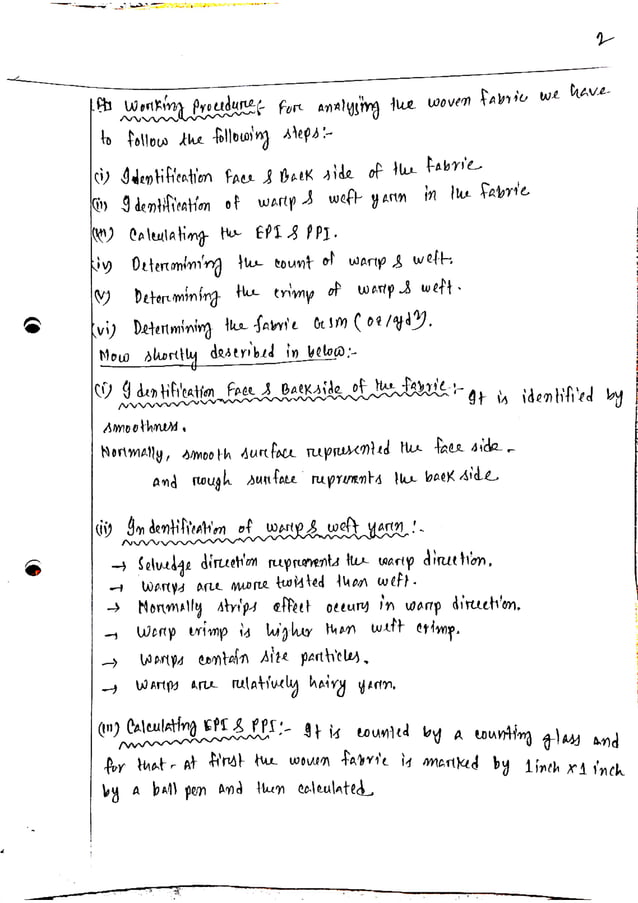 2
Working Procedure:- For analysing the woven fabric we have
to follow the following steps:-
(i) Identification Face & Back side of the fabric
(ii) Identification of warp & weft yarn in the fabric
(iii) Calculating the EPI & PPI.
(iv) Determining the count of warp & weft.
(v) Determining the crimp of warp & weft.
(vi) Determining the fabric GSM (oz/yd²).
Now shortly described in below:-
(i) Identification Face & Backside of the fabric:- It is identified by
smoothness.
Normally, smooth surface represented the face side.
and rough surface represents the back side
(ii) Indentification of warp & weft yarn:-
→ Selvedge direction represents the warp direction.
→ Warps are more twisted than weft.
→ Normally strips effect occurs in warp direction.
→ Warp crimp is higher than weft crimp.
→ Warps contain size particles.
→ Warps are relatively hairy yarn.
(iii) Calculating EPI & PPI:- It is counted by a counting glass and
for that - at first the woven fabric is marked by 1 inch x 1 inch
by a ball pen and then calculated.